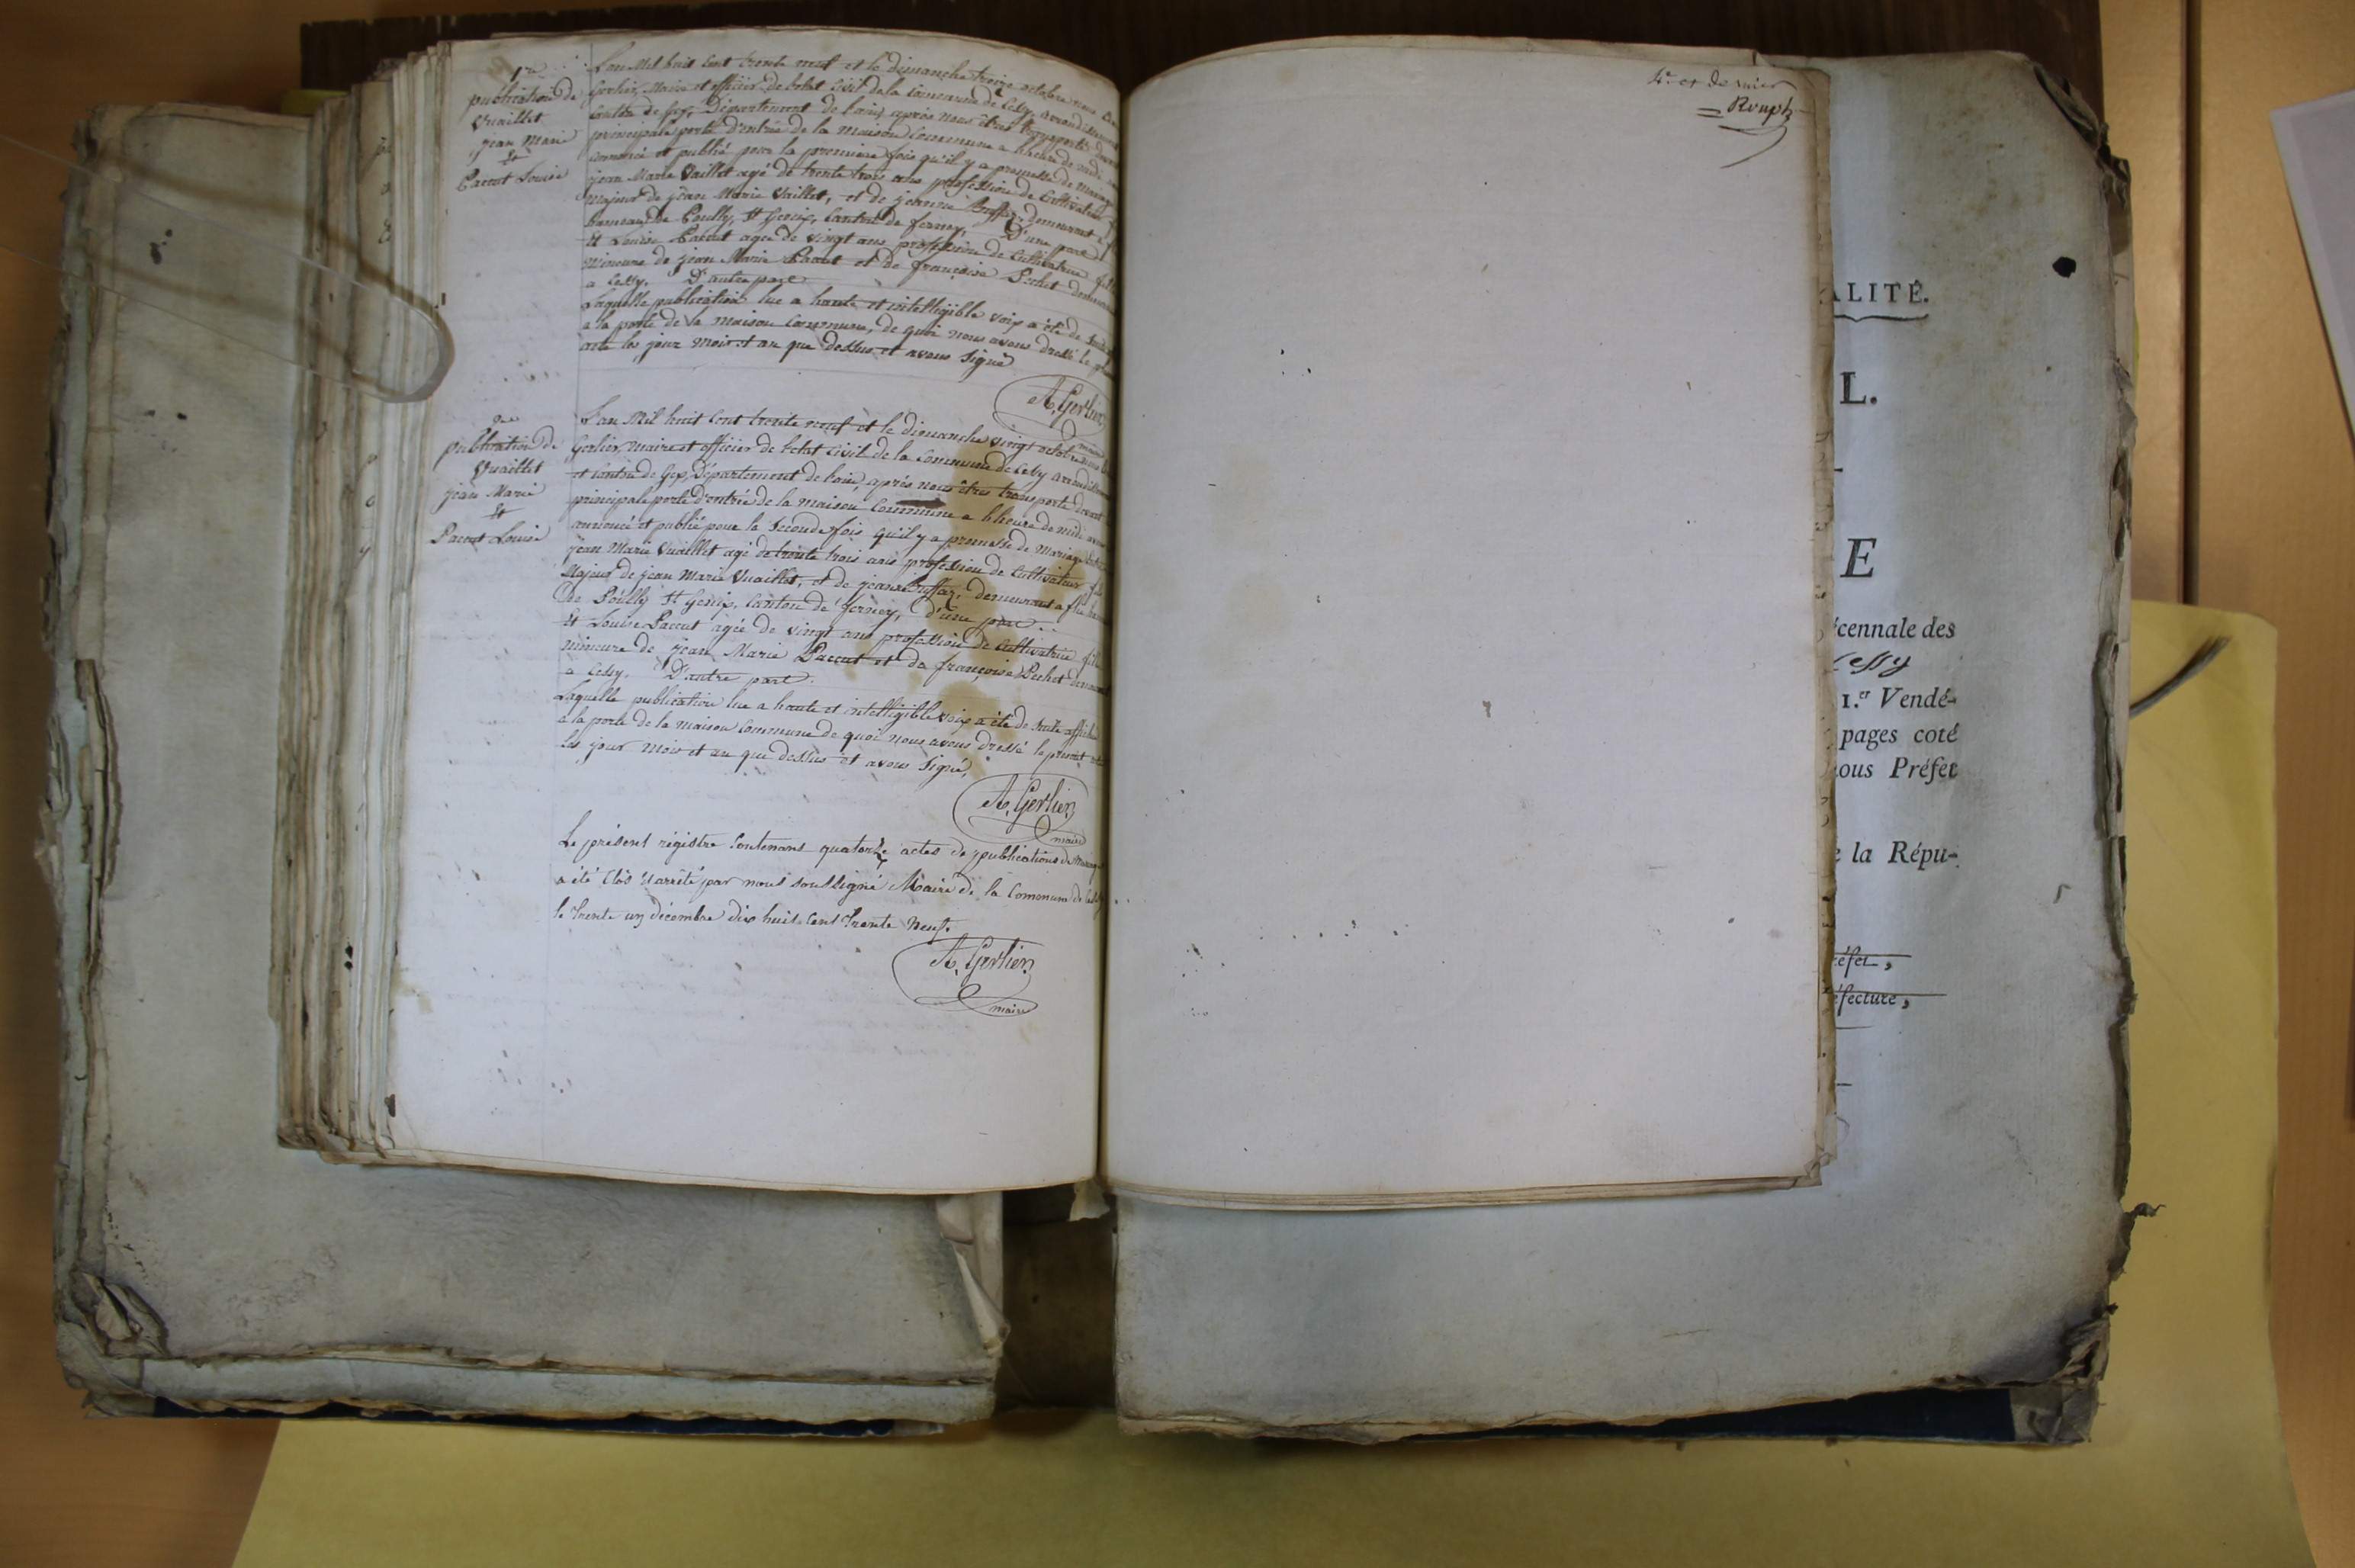 1re
publication de
Vuaillet
jean Marie
Et
Paccut Louise
L'an Mil huit Cent trente neuf et le dimanche treize octobre nous
Gerlier, Maire et officier de l'etat Civil de la Commune de Cessy, arrondissement
Canton de Gex, Département de l'ain, après nous êtres transporté devant
principale porte d'entrée de la maison Commune a l'heure de midi
annoncé et publié pour la première fois qu'il y a promesse de Mariage
jean Marie Vaillet agé de trente trois ans profession de Cultivateur
Majeur de jean Marie Vaillet, et de jeanne Buffaz, demeurant a
hameau de Pouilly, St Genix, Canton de ferney, D'une part
Et Louise Paccut agée de vingt ans profession de Cultivatrice fille
mineure de jean Marie Paccut et de françoise Pechet
a Cessy. D'autre part
Laquelle publication lue a haute et intelligible voix a été de suite
a la porte de la maison Commune, de quoi nous avons dressé le
acte les jour mois et an que dessus et avons signé
A, Gerlier,
maire
2me
publication de
Vuaillet
jean Marie
Et
Paccut Louise
L'an Mil huit Cent trente neuf et le dimanche vingt octobre nous
Gerlier, maire et officier de l'etat Civil de la Commune de Cessy arrondissement
et Canton de Gex, Département de l'ain, après nous êtres transporté devant
principale porte d'entrée de la maison Commune a l'heure de midi avons
annoncé et publié pour la Seconde fois qu'il y a promesse de Mariage
jean Marie Vuaillet agé de trente trois ans profession de Cultivateur, fils
Majeur de jean Marie Vuaillet, et de jeanne Buffaz, demeurant a
De Pouilly St Genix, Canton de ferney, d'une part..
Et Louise Paccut agée de vingt ans profession de Cultivatrice fille
mineure de jean Marie Paccut et de françoise Pechet demeurant
a Cessy. D'autre part.
Laquelle publication lue a haute et intelligible voix a été de suite affichée
a la porte de la maison Commune de quoi nous avons dressé le present acte
Les jour mois et an que dessus et avons signé,
A, Gerlier,
maire
Le présent régistre Contenant quatorze actes de publications de Mariage
a été Clos et arrêté par nous soussigné Maire de la Commune de Cessy
le trente un décembre dix huit Cent trente neuf.
A, Gerlier,
maire
4e et dernier
Rouph
ALITÉ.
L.
E
cennale des
Cessy
1.er Vendé-
pages coté
ous Préfet
la Répu-
éfet,
éfecture,